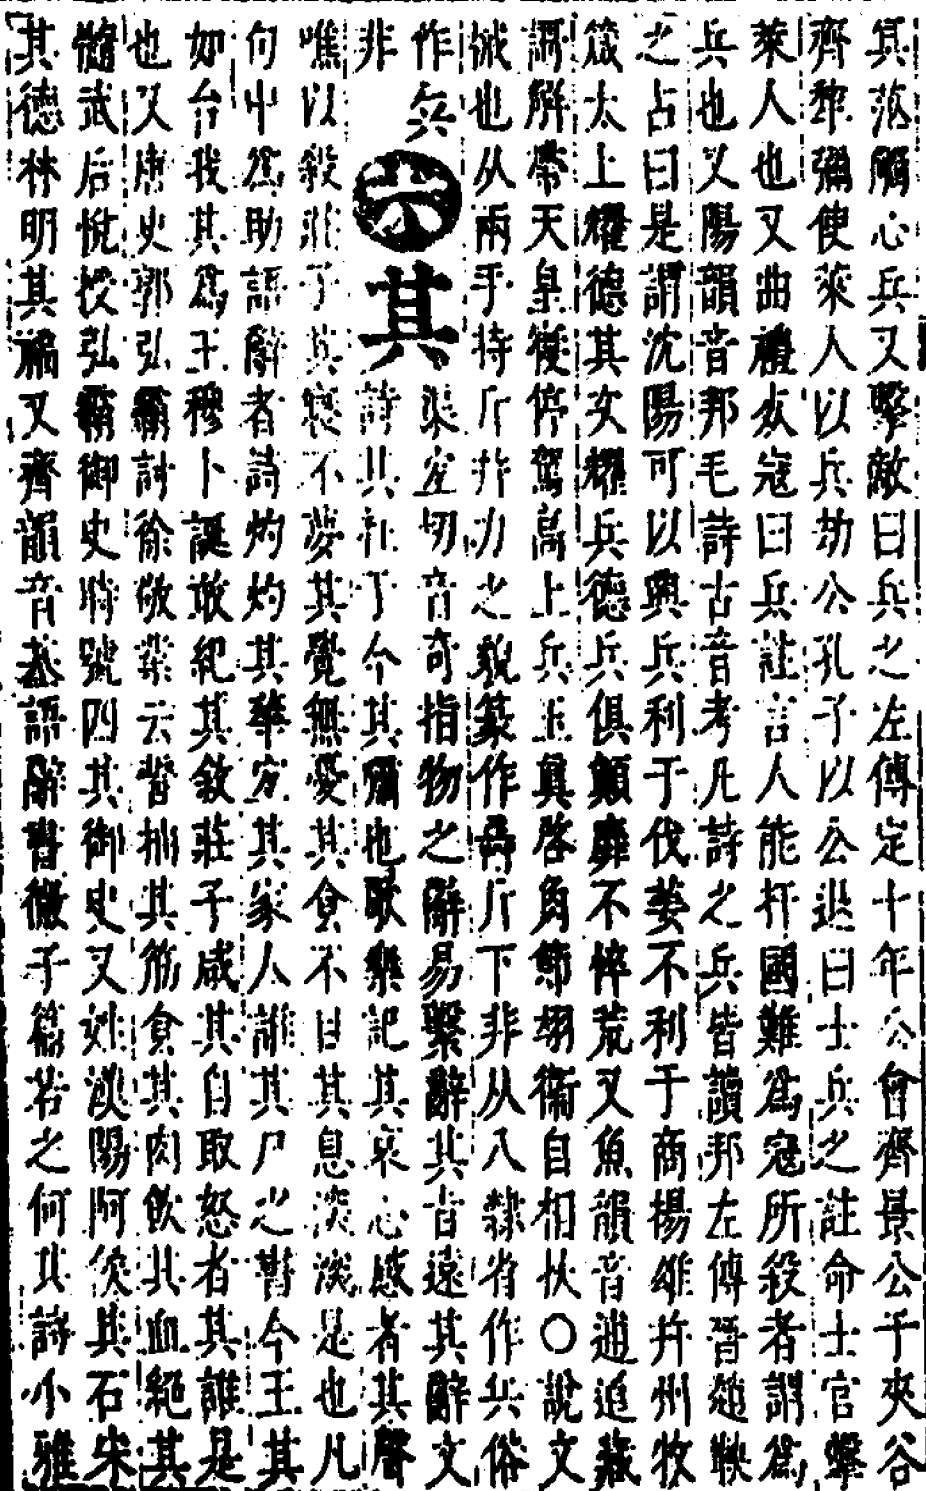 冥莈觸心兵又擊敵曰兵之左傳定十年公會齊景公于夾谷
齊犂彌使萊人以兵劫公孔子以公退曰士兵之註命士官擊
萊人也又曲禮死寇曰兵註言人能扞國難爲寇所殺者謂爲
兵也又陽韻音邦毛詩古音考凡詩之兵皆讀邦左傳晉趙鞅
之占曰是謂沈陽可以興兵利于伐姜不利于商楊雄幷州牧
箴太上耀德其女耀兵德兵俱顛靡不悴荒又魚韻音逋道藏
謌解帶天皇寢停駕高上兵玉眞啓角節翊衛自相扶〇說文
械也从兩手持斤幷力之貌篆作𠔋斤下非从八隸省作兵俗
作兵非
六
其
渠宜切音奇指物之辭易繫辭其旨遠其辭文
詩其雨其雨禮樂記其哀心感者其聲
噍以殺莊子其寢不夢其覺無憂其食不甘其息深深是也凡
句中爲助語辭者詩灼灼其華宜其家人誰其尸之書今王其
如台我其爲王穆卜誕敢紀其敘莊子咸其自取怒者其誰是
也又唐史郭弘霸討徐敬業云誓抽其筋食其肉飲其血絕其
髓武后悅授弘霸御史時號四其御史又姓漢陽阿侯其石宋
其德林明其禎又齊韻音基語辭書微子篇若之何其詩小雅